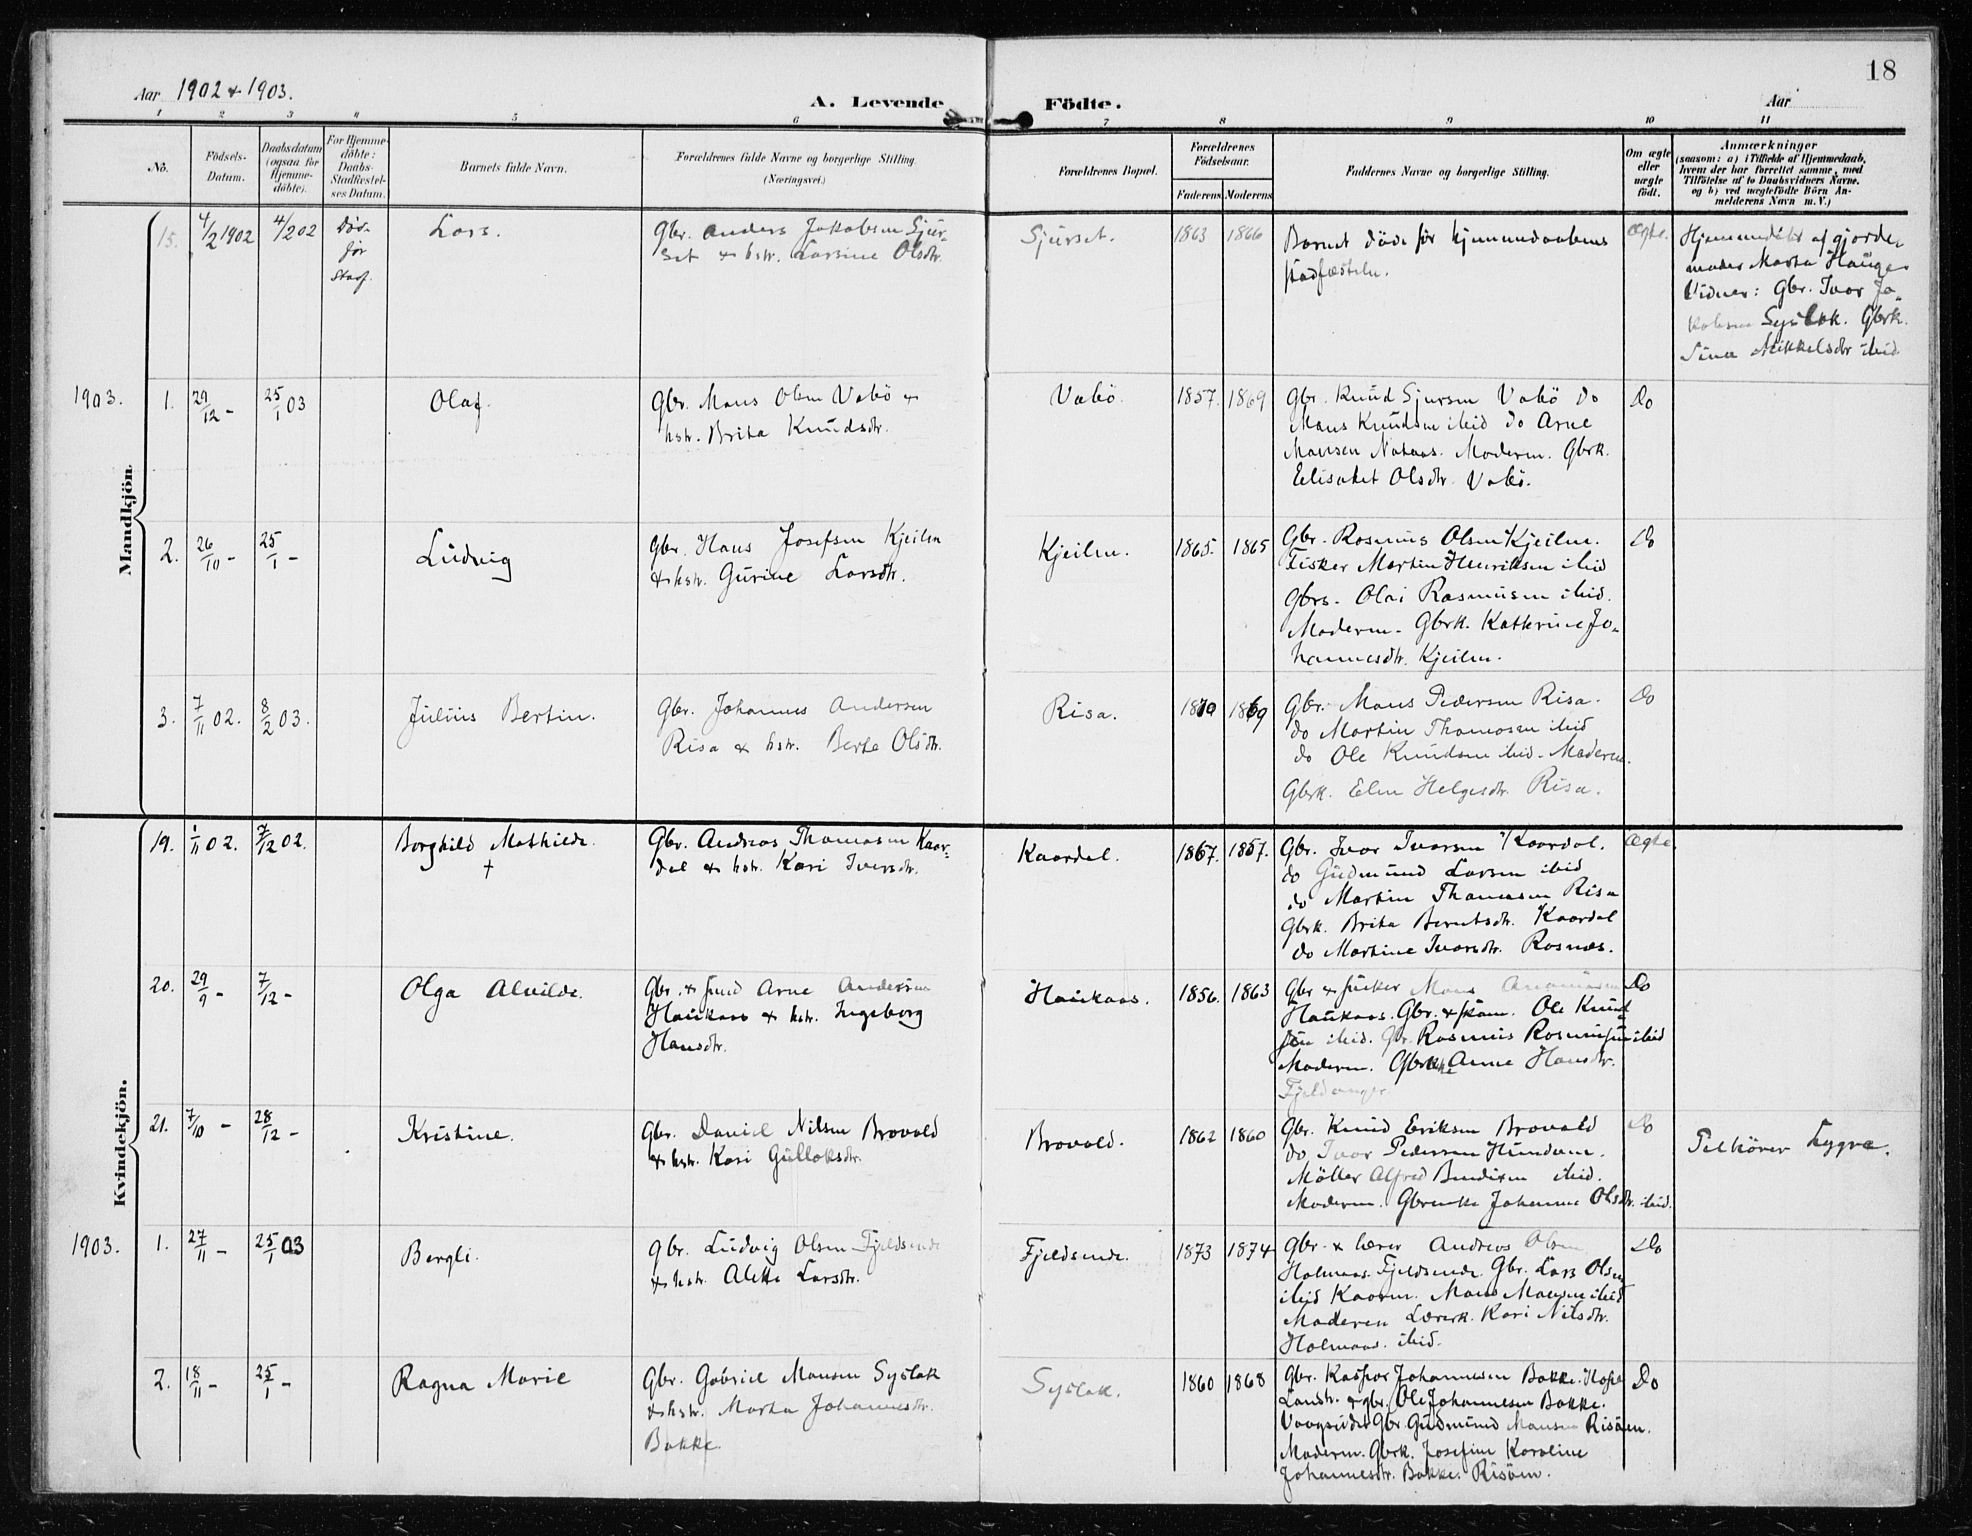 18
Aar 1902 & 1903.
A. Levende Födte.
Aar
1 2 3 4 5 6 7 8 9 10 11
No.
Födsels-Datum.
Daabsdatum (ogsaa for Hjemmedöbte).
For Hjemmedöbte: Daabs-Stadfæstelses Datum.
Barnets fulde Navn.
Forældrenes fulde Navne og borgerlige Stilling. (Næringsvei.)
Forældrenes Bopæl.
Forældrenes Födselsaar.
Faderens Moderens
Faddernes Navne og borgerlige Stilling.
Om ægte eller uægte födt.
Anmærkninger
(saasom: a) i Tilfælde af Hjemmedaab, hvem der har forrettet samme, med Tilföielse af to Daabsvidners Navne, og b) ved uægtefödte Börn Anmelderens Navn m. V.)
Mandkjön.
15. 4/2 1902 4/2 02 Död før Stadf.
Lars.
Gbr. Anders Jakobsen Sjurset & hstr. Larsine Olsdtr.
Sjurset. 1863 1866
Barnet døde før hjemmedaabens stadfæstelse.
Ægte.
Hjemmedöbt af gjordemoder Marta Hauge
Vidner: Gbr. Ivar Jakobsen Syslak. Gbrk.
Sina Mikkelsdtr ibid
1903.
1. 29/12 - 25/1 03
Olaf.
Gbr. Mons Olsen Vabö &
hstr. Brita Knudsdtr.
Vabö. 1857. 1869
Gbr. Knud Sjursen Vabö do
Mons Knudsen ibid do Arne
Monsen Nataas. Moderen. Gbrk.
Elisabet Olsdtr. Vabö.
Do
2. 26/10 - 25/1 -
Ludvig
Gbr. Hans Josefsen Kjeilen
& hstr. Gurine Larsdtr.
Kjeilen. 1865. 1865
Gbr. Rasmus Olsen Kjeilen.
Fisker Martin Henriksen ibid
Gbrs. Olai Rasmusen ibid.
Moderen. Gbrk. Katrine Johannesdtr. Kjeilen.
Do
3. 7/11 02. 8/2 03.
Julius Bertin.
Gbr. Johannes Andersen
Risa & hstr. Berte Olsdtr.
Risa. 1870 1869
Gbr. Mons Pedersen Risa.
do Martin Thomasen ibid
do Ole Knudsen ibid. Moderen.
Gbrk. Elen Helgesdtr. Risa.
Do
Kvindekjön.
19. 1/11 02. 7/12 02.
Borghild Mathilde.
†
Gbr. Andreas Thomasen Kaardal & hstr. Kari Iversdtr.
Kaardal. 1867. 1857.
Gbr. Ivar Ivarsen Kaardal.
do Gudmund Larsen ibid
do Martin Thomasen Risa
Gbrk. Brita Berntsdtr. Kaardal
do Martine Ivarsdtr. Rosnæs.
Ægte.
20. 29/9 - 7/12 -
Olga Alvilde.
Gbr. & smed Arne Andersen
Haukaas & hstr. Ingeborg
Hansdtr.
Haukaas. 1856. 1863
Gbr & fisker Mons
Haukaas. Gbr. & skom. Ole Knudsen ibid. Gbr. Rasmus Rasmussen ibid
Moderen. Gbrenke Anne Hansdtr.
Fjeldanger
Do
21. 7/10 - 28/12 -
Kristine.
Gbr. Daniel Nilsen Brovold
& hstr. Kari Gullaksdtr.
Brovold. 1862 1860
Gbr. Knud Eriksen Brovold
do Ivar Pedersen Hundven.
Möller Alfred Bendixen ibid.
Moderen. Gbrenke Johanne Olsdtr. ibid.
Do
Tilhörer Lygra.
1903.
1. 27/11 - 25/1 03
Bergli.
Gbr. Ludvig Olsen Fjeldsende
& hstr. Aletta Larsdtr.
Fjeldsende. 1873 1874
Gbr. & lærer Andreas Olsen
Holmaas. Fjeldsende. Gbr. Lars Olsen
ibid Mons Monsen ibid
Moderen Lærerk. Kari Nilsdtr.
Holmaas. ibid.
Do
2. 18/11 - 25/1 -
Ragna Marie
Gbr. Gabriel Monsen Syslak
& hstr. Marta Johannesdtr.
Bakke.
Syslak. 1860 1868
Gbr. Kaspar Johannesen Bakke. Hope
Landstr. & gbr. Ole Johannesen Bakke.
Gbr. Gudmund Monsen Risöen.
Moderen. Gbrk. Josefine Karoline
Johannesdtr. Bakke. Risöen.
Do